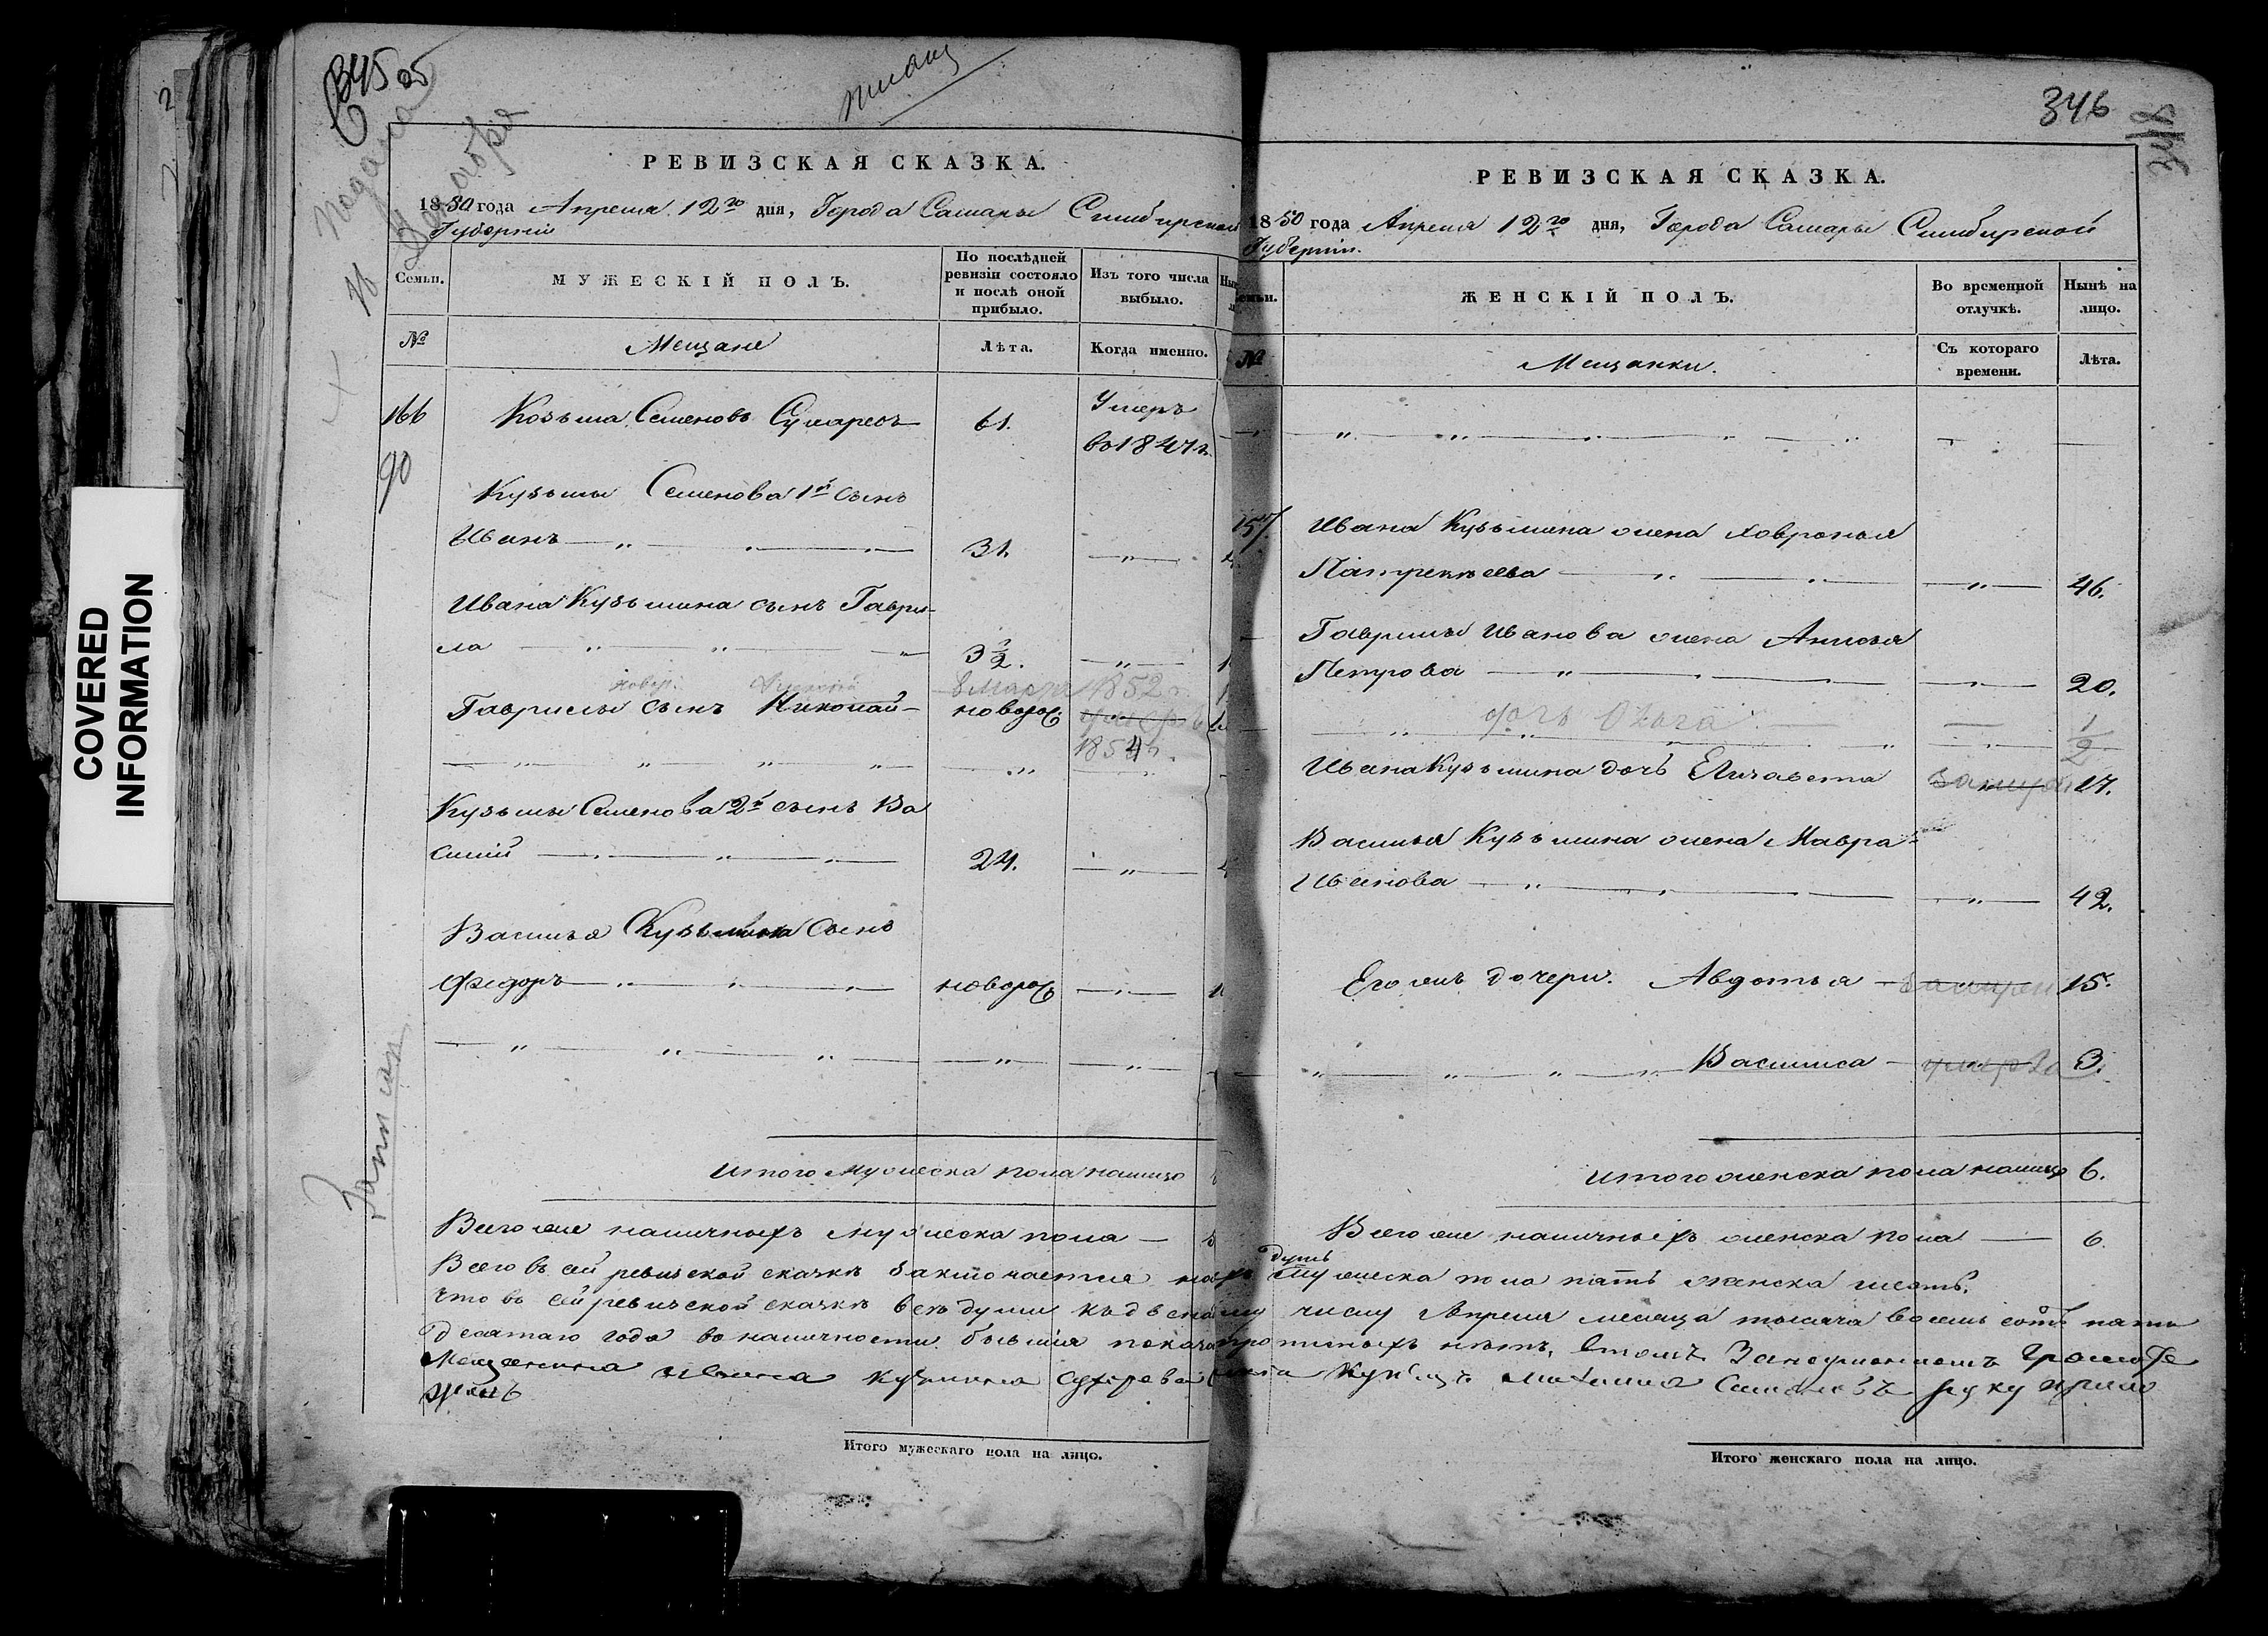 345 об
мещан
подана
Ноября
РЕВИЗСКАЯ СКАЗКА.
1850 года Апреля 12го дня, Города Самары Симбирской
Губернии
Семьи.
МУЖЕСКІЙ ПОЛЪ.
По послѣдней ревизіи состояло и послѣ оной прибыло.
Изъ того числа выбыло.
№
Мещане
Лѣта.
Когда именно.
166
Козьма Семеновъ
61.
Умеръ
во 1847 г.
90
Кузьмы Семенова 1й сынъ
Иванъ
31.
Ивана Кузьмина сынъ Гаври-
ла
3 1/2.
8 Марта 1852 г.
Гаврилы сынъ Николай
новорож
умеръ в
1854 г.
Кузьмы Семенова 2й сынъ Ва
силий
24.
Василья Кузьмина сынъ
Федоръ
новорож
Записан
Итого мужеска пола налицо
Всего же наличныхъ мужеска пола
Итого мужескаго пола на лицо.
COVERED
INFORMATION
346
348
РЕВИЗСКАЯ СКАЗКА.
1850 года Апреля 12го дня, Города Самары Симбирской
Губернии.
Семьи.
ЖЕНСКІЙ ПОЛЪ.
Во временной отлучкѣ.
Нынѣ на лицо.
№
Мещанки.
Съ котораго времени.
Лѣта.
157.
Ивана Кузьмина жена Ховронья
Патрекеева
46.
Гаврилы Иванова жена
Петрова
20.
дочь Ольга
1/2
Ивана Кузьмина дочь Елизавета
замуж
17.
Василья Кузьмина жена Мавра
Иванова
42.
Его же дочери. Авдотья
замужем
15.
Василиса
умерла
3.
Итого женска пола налицо 6.
Всего же наличныхъ женска пола 6.
Всего въ сей ревизской сказкѣ заключается душъ мужеска пола пять женска шесть.
что въ сей ревизской сказкѣ всѣ души къ числу Апреля месяца тысяча восемь сотъ пять
десятаго года въ наличности бывшія показаны прописныхъ нѣтъ, в томъ
Мещанина Ивана Кузмина Купецъ руку прило
жилъ
Итого женскаго пола на лицо.